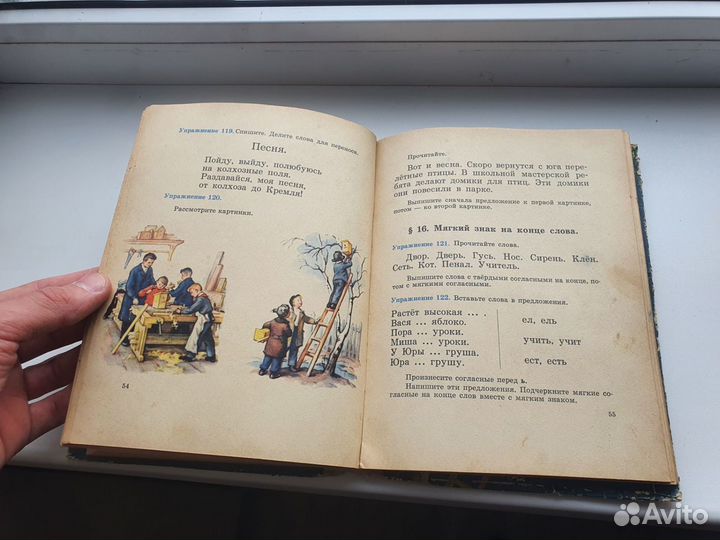 Упражнение 119. Спишите. Делите слова для переноса.
Песня.
Пойду, выйду, полюбуюсь
на колхозные поля.
Раздавайся, моя песня,
от колхоза до Кремля!
Упражнение 120.
Рассмотрите картинки.
54
Прочитайте.
Вот и весна. Скоро вернутся с юга пере-
лётные птицы. В школьной мастерской ре-
бята делают домики для птиц. Эти домики
они повесили в парке.
Выпишите сначала предложение к первой картинке,
потом — ко второй картинке.
§ 16. Мягкий знак на конце слова.
Упражнение 121. Прочитайте слова.
Двор. Дверь. Гусь. Нос. Сирень. Клён.
Сеть. Кот. Пенал. Учитель.
Выпишите слова с твёрдыми согласными на конце, по-
том с мягкими согласными.
Упражнение 122. Вставьте слова в предложения.
Растёт высокая ... .
Вася ... яблоко. ел, ель
Пора ... уроки.
Миша ... уроки. учить, учит
У Юры ... груша.
Юра ... грушу. ест, есть
Произнесите согласные перед ь.
Напишите эти предложения. Подчеркните мягкие со-
гласные на конце слов вместе с мягким знаком.
55
Avito